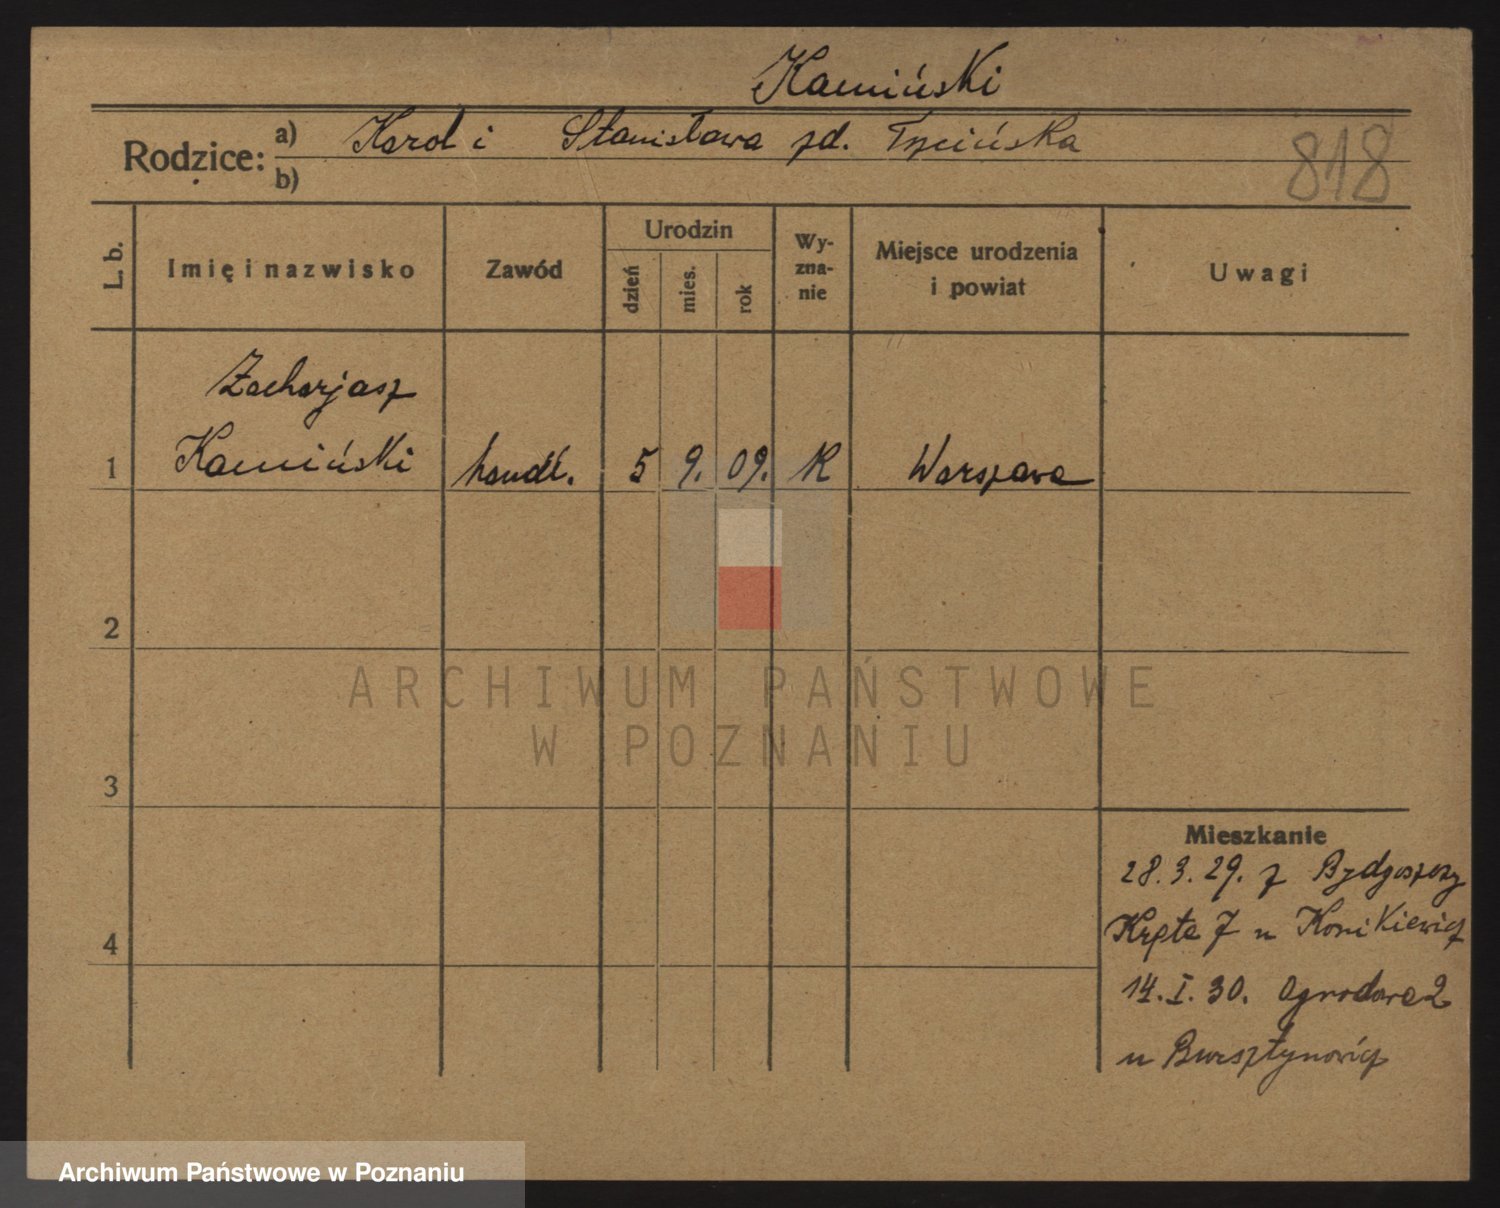 Kamiński
Rodzice: a) Karol i Stanisława zd.
b)
818
L. b. Imię i nazwisko Zawód Urodzin dzień mies. rok Wyznanie Miejsce urodzenia i powiat Uwagi
Zacharjasz
1 Kamiński handl. 5 9. 09. K Warszawa
2
3
4
Mieszkanie
28.3.29. z Bydgoszczy
Kręta 7 u Konikiewicz
14.I.30. Ogrodowa 2
u Bursztynowicz
ARCHIWUM PAŃSTWOWE
W POZNANIU
Archiwum Państwowe w Poznaniu